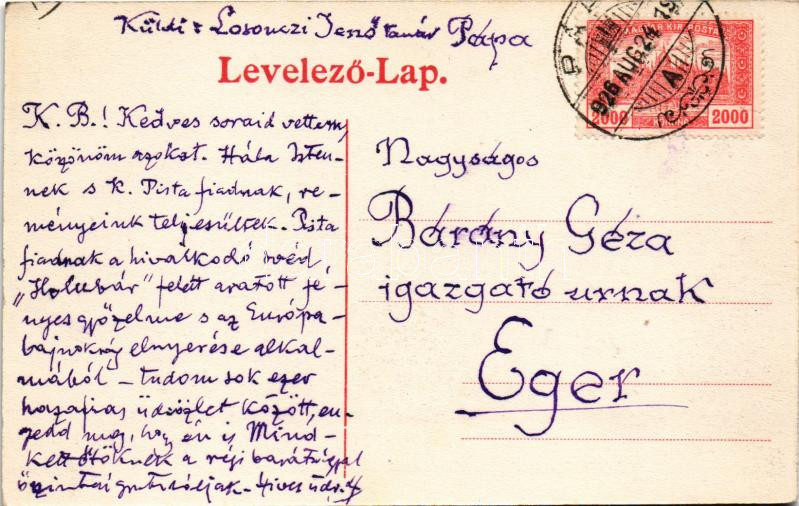 Küldi: Losonczi Jenő tanár Pápa
Levelező-Lap.
MAGYAR KIR. POSTA
2000 2000
PÁPA
926 AUG 24
A
K. B.! Kedves soraid vettem,
köszönöm azokat. Hála Isten-
nek s k. Pista fiadnak, re-
ményeink teljesültek. Pista
fiadnak a hivalkodó svéd
„Holubár" felett aratott fé-
nyes győzelme s az Európa-
bajnokság elnyerése alkal-
mából – tudom sok ezer
hazafias üdvözlet között, en-
gedd meg, hogy én is Mind-
kettőtöknek a régi barátsággal
őszintén gratuláljak. Hives üdv.
Nagyságos
Bárány Géza
igazgató urnak
Eger